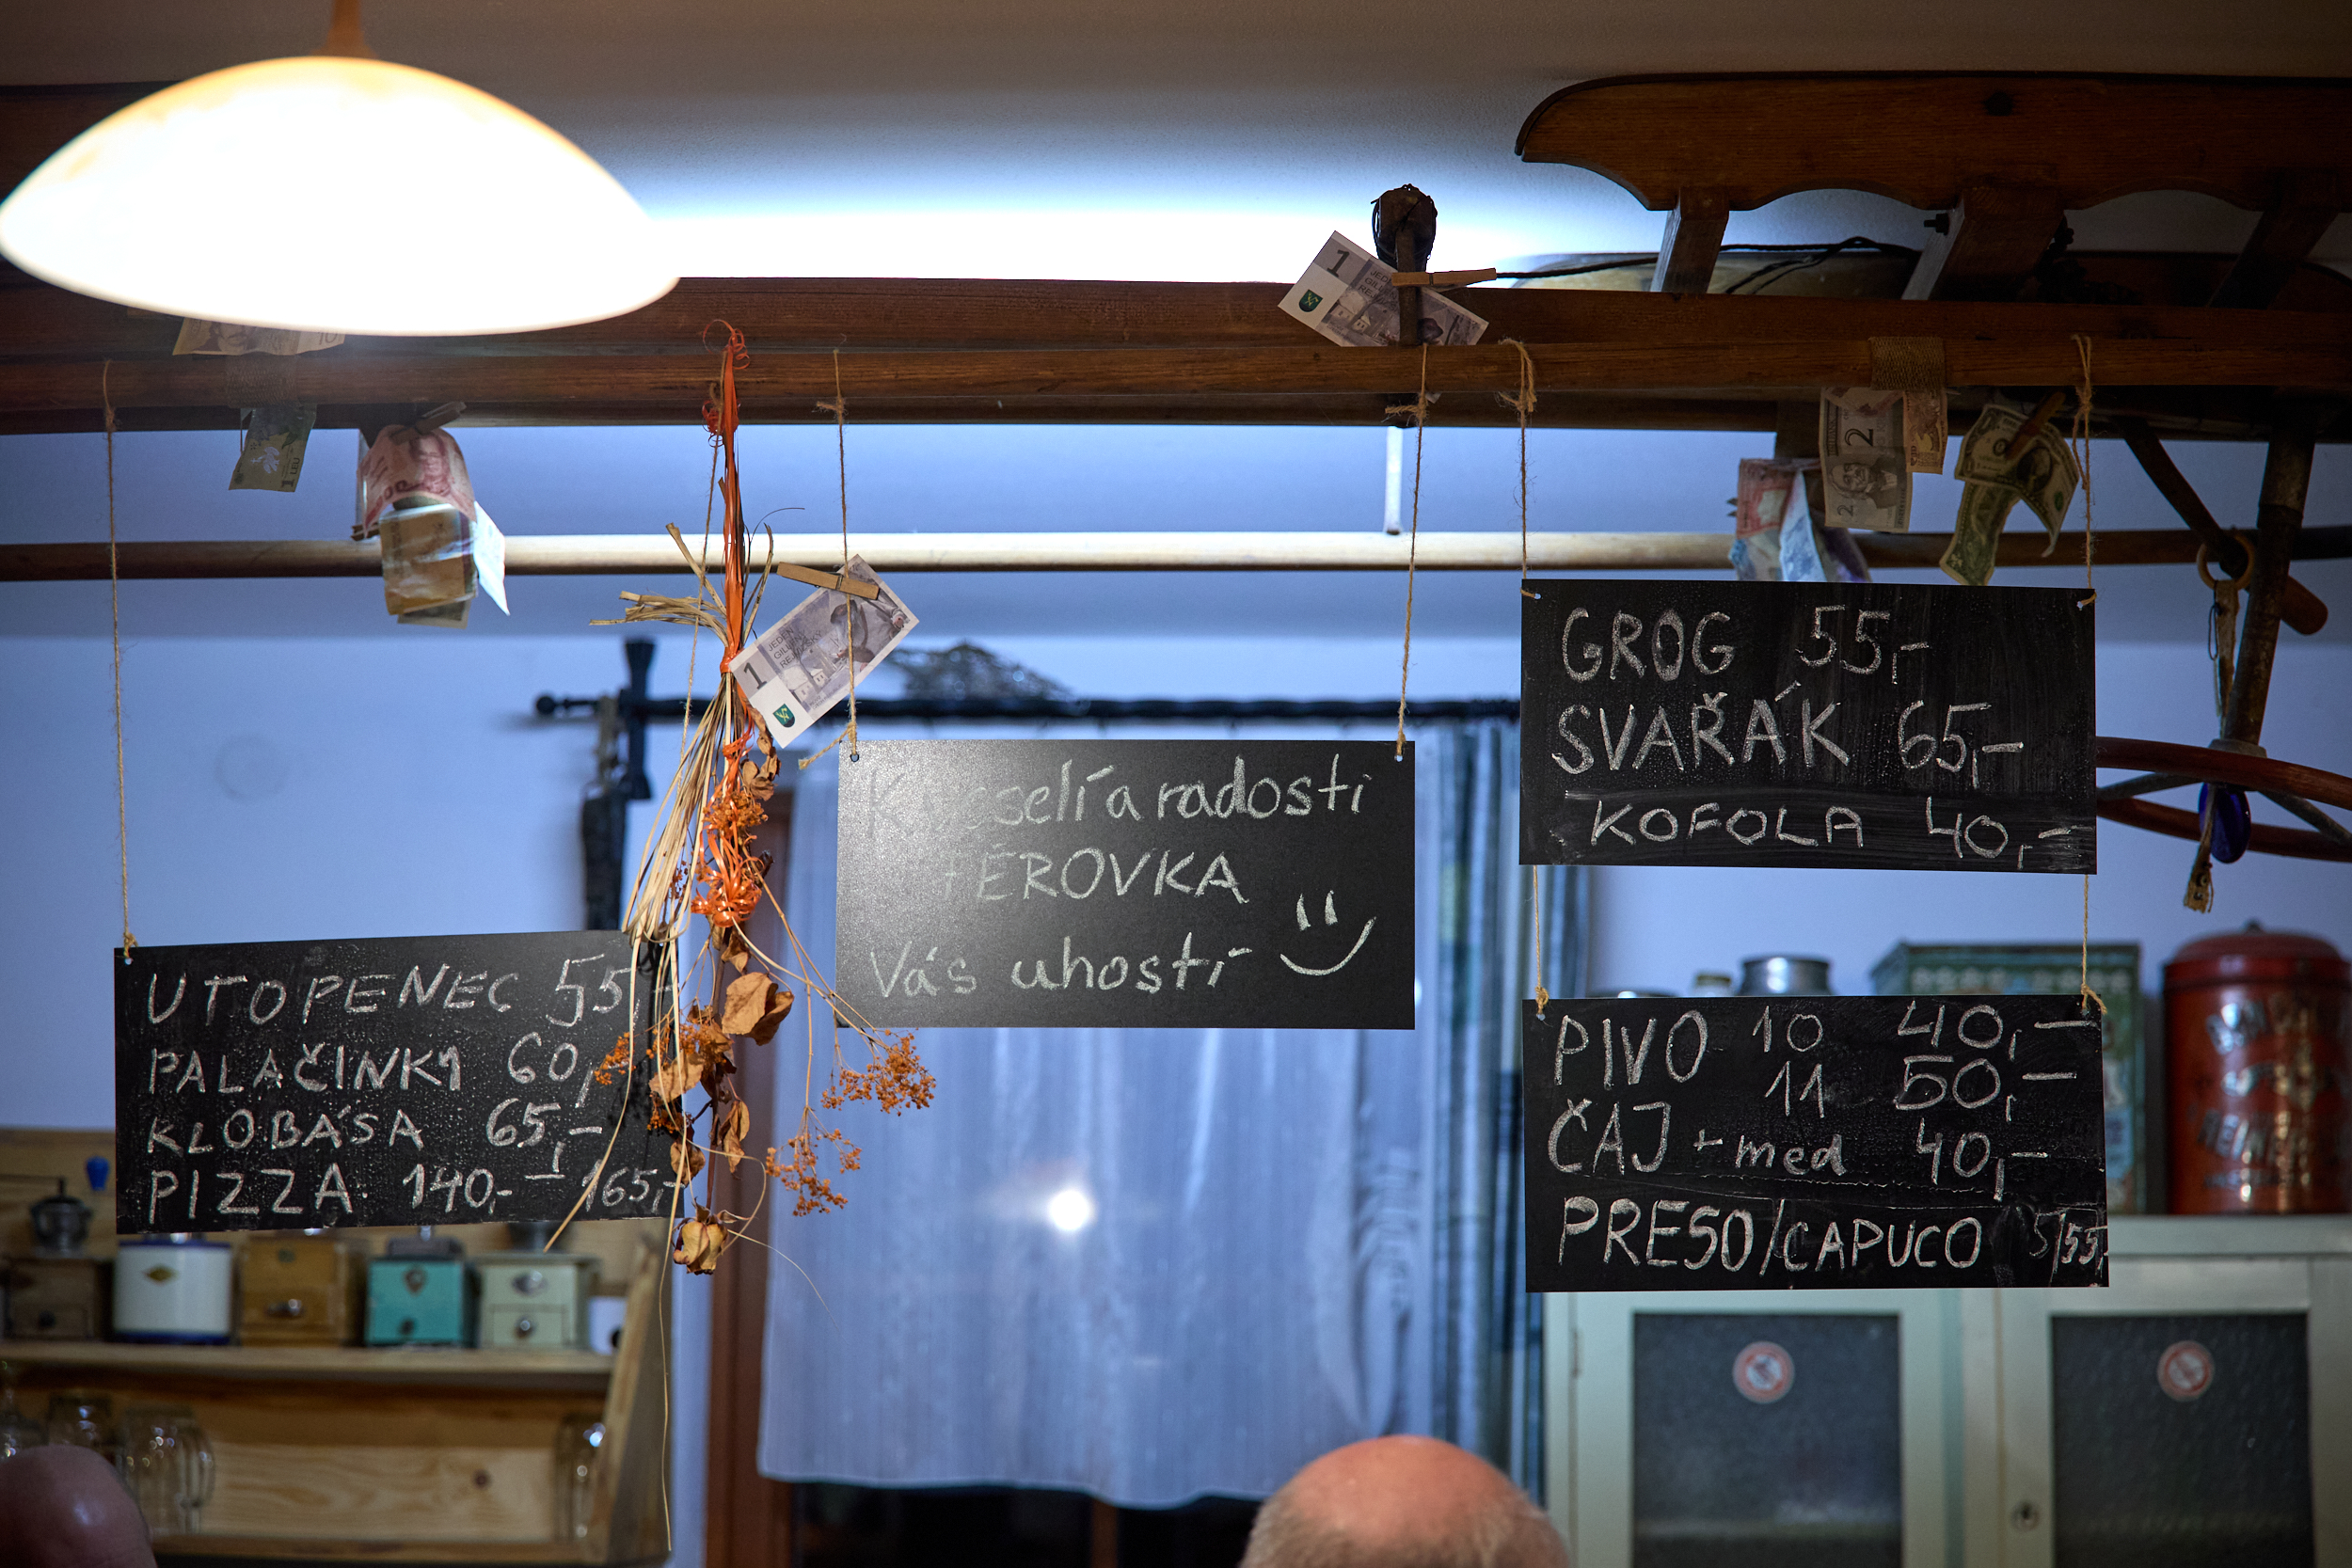 UTOPENEC 55,-
PALAČINKY 60,-
KLOBÁSA 65,-
PIZZA 140,- - 165,-
K veselí a radosti
TÉROVKA
Vás uhostí
GROG 55,-
SVAŘÁK 65,-
KOFOLA 40,-
PIVO 10 40,-
11 50,-
ČAJ + med 40,-
PRESO/CAPUCO /55,-
1
JEDEN
1
JEDEN
2
2
1 LEU
10